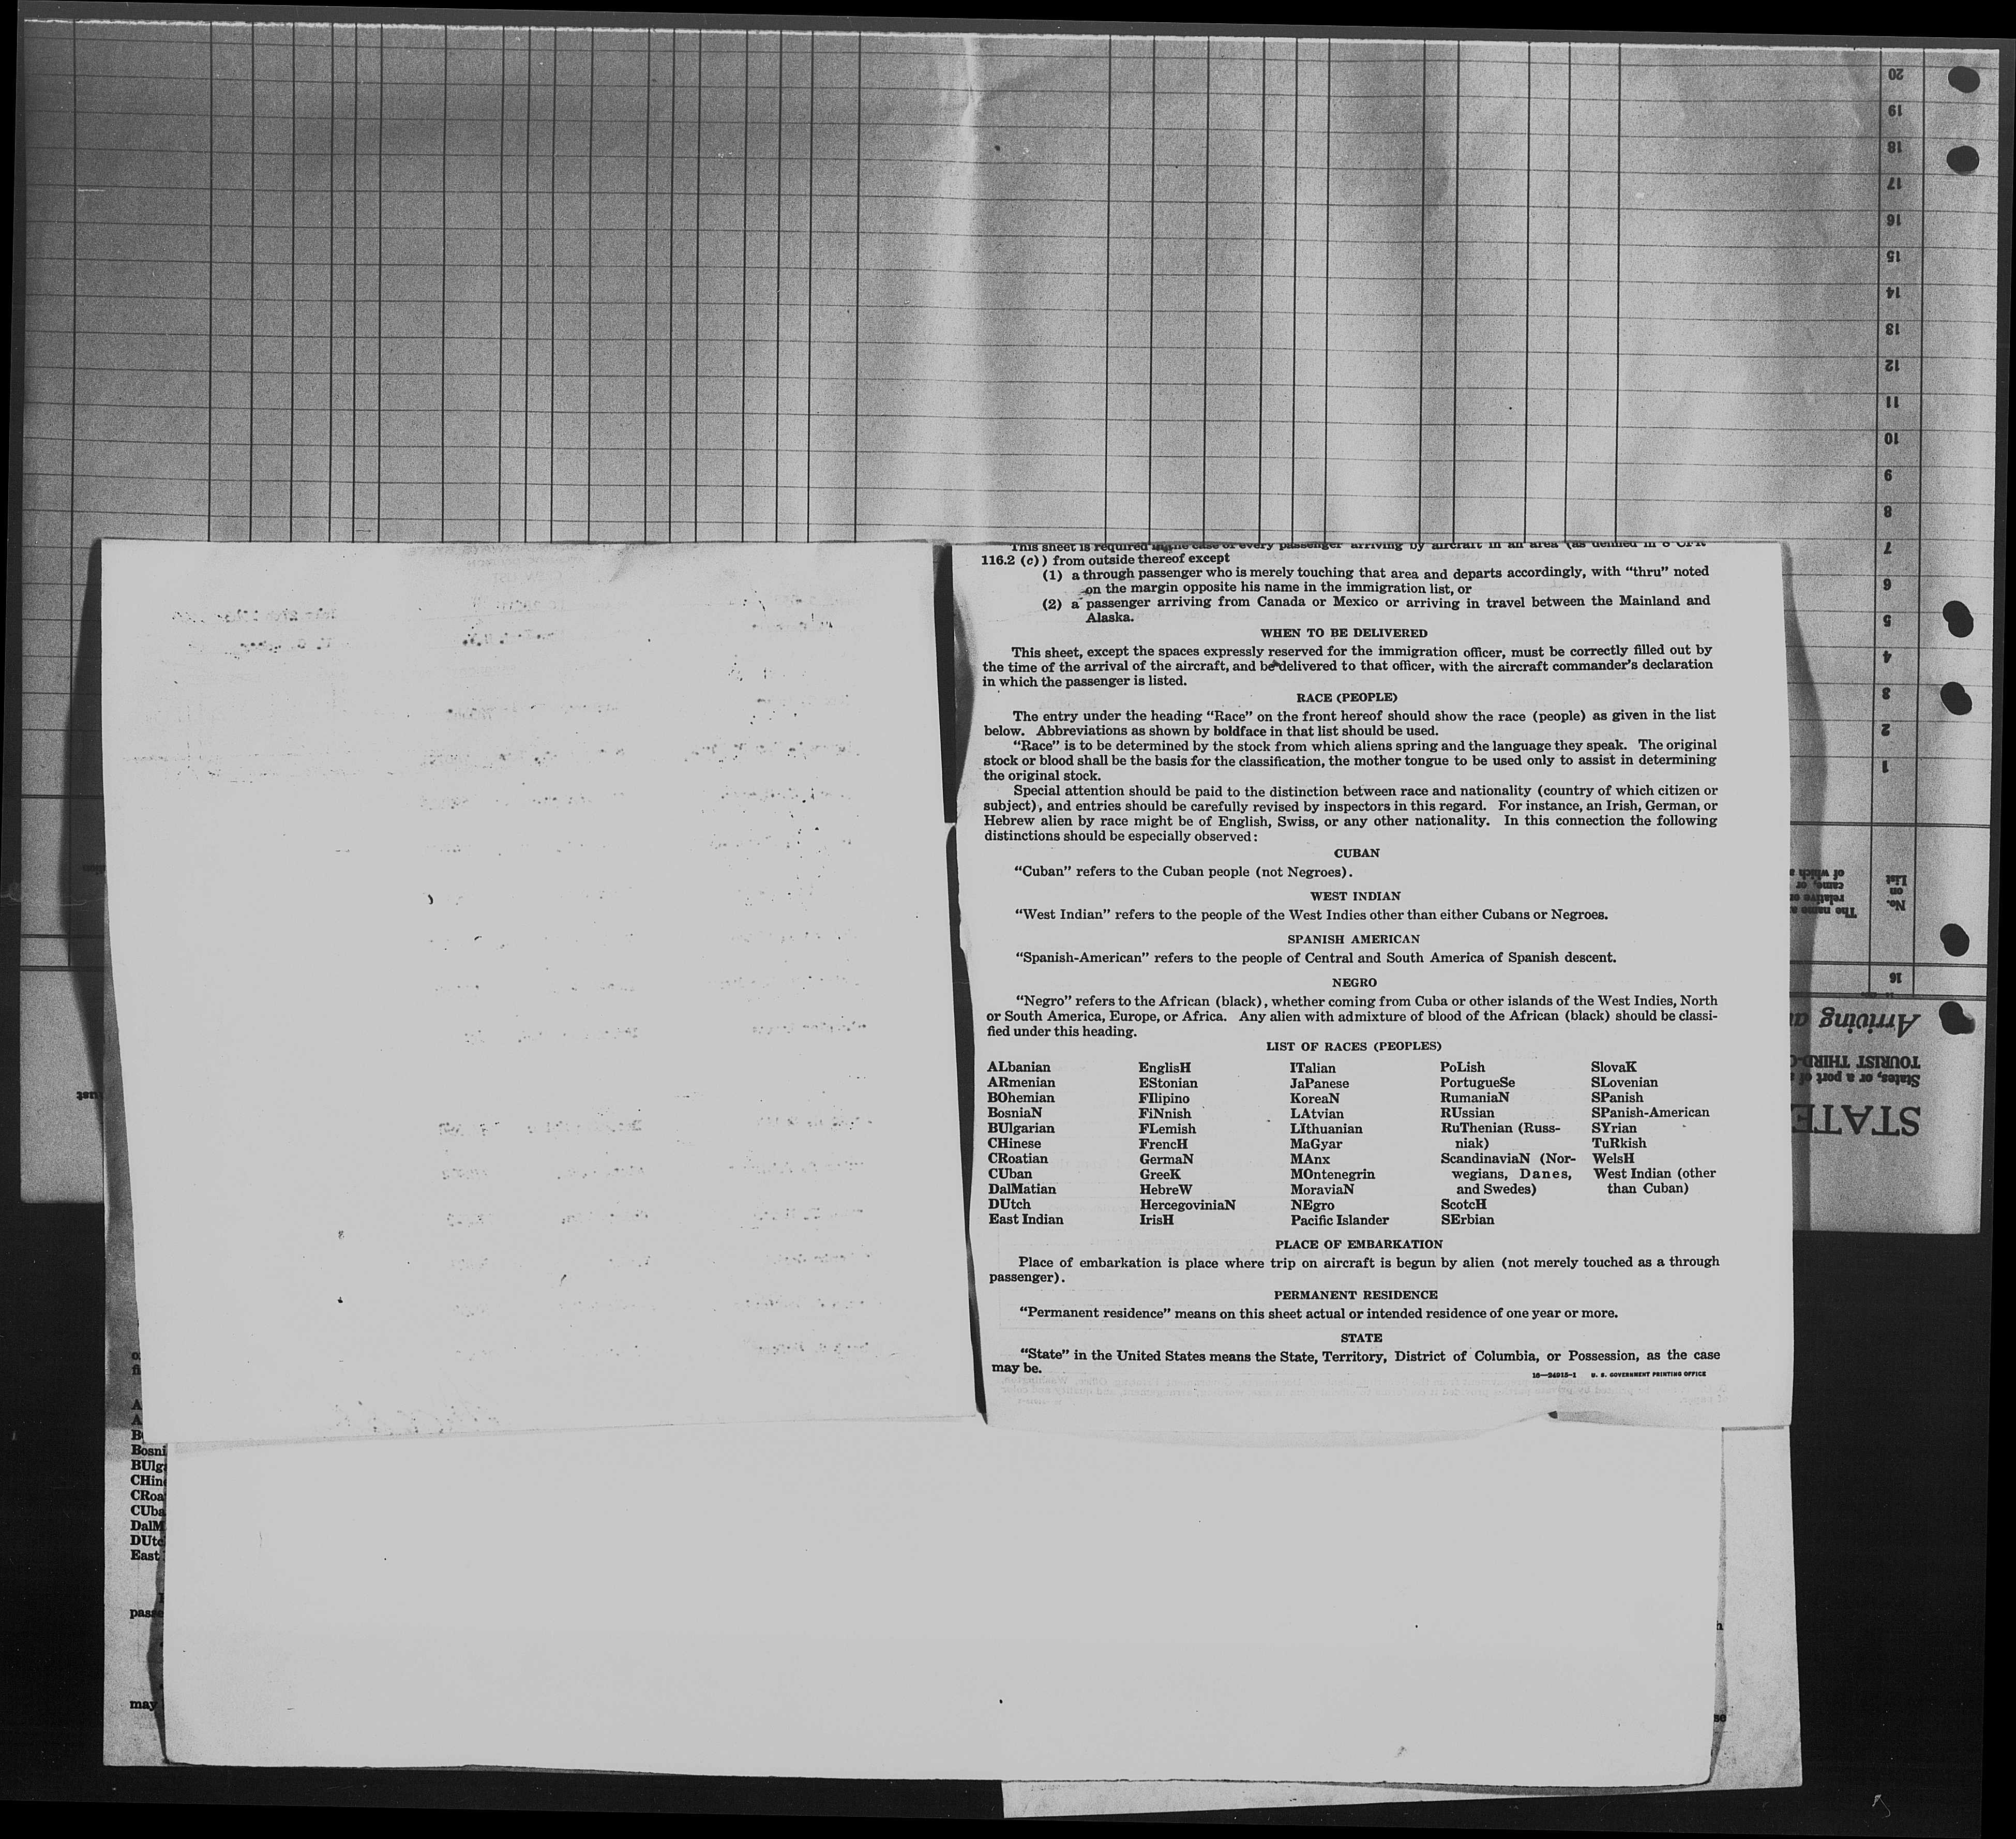 20
19
18
17
16
15
14
13
12
11
10
9
8
7
6
5
4
3
2
1
No.
on
List
The name a
relative or
came, or
of which a
16
Arriving a
TOURIST THIRD-C
States, or a port of
STATE
This sheet is required in the case of every passenger arriving by aircraft in an area (as defined in 8 CFR
116.2 (c)) from outside thereof except
(1) a through passenger who is merely touching that area and departs accordingly, with “thru” noted
on the margin opposite his name in the immigration list, or
(2) a passenger arriving from Canada or Mexico or arriving in travel between the Mainland and
Alaska.
WHEN TO BE DELIVERED
This sheet, except the spaces expressly reserved for the immigration officer, must be correctly filled out by
the time of the arrival of the aircraft, and be delivered to that officer, with the aircraft commander’s declaration
in which the passenger is listed.
RACE (PEOPLE)
The entry under the heading “Race” on the front hereof should show the race (people) as given in the list
below. Abbreviations as shown by boldface in that list should be used.
“Race” is to be determined by the stock from which aliens spring and the language they speak. The original
stock or blood shall be the basis for the classification, the mother tongue to be used only to assist in determining
the original stock.
Special attention should be paid to the distinction between race and nationality (country of which citizen or
subject), and entries should be carefully revised by inspectors in this regard. For instance, an Irish, German, or
Hebrew alien by race might be of English, Swiss, or any other nationality. In this connection the following
distinctions should be especially observed:
CUBAN
“Cuban” refers to the Cuban people (not Negroes).
WEST INDIAN
“West Indian” refers to the people of the West Indies other than either Cubans or Negroes.
SPANISH AMERICAN
“Spanish-American” refers to the people of Central and South America of Spanish descent.
NEGRO
“Negro” refers to the African (black), whether coming from Cuba or other islands of the West Indies, North
or South America, Europe, or Africa. Any alien with admixture of blood of the African (black) should be classi-
fied under this heading.
LIST OF RACES (PEOPLES)
ALbanian
ARmenian
BOhemian
BosniaN
BUlgarian
CHinese
CRoatian
CUban
DalMatian
DUtch
East Indian
EnglisH
EStonian
FIlipino
FiNnish
FLemish
FrencH
GermaN
GreeK
HebreW
HercegoviniaN
IrisH
ITalian
JaPanese
KoreaN
LAtvian
LIthuanian
MaGyar
MAnx
MOntenegrin
MoraviaN
NEgro
Pacific Islander
PoLish
PortugueSe
RumaniaN
RUssian
RuThenian (Russ-
niak)
ScandinaviaN (Nor-
wegians, Danes,
and Swedes)
ScotcH
SErbian
SlovaK
SLovenian
SPanish
SPanish-American
SYrian
TuRkish
WelsH
West Indian (other
than Cuban)
PLACE OF EMBARKATION
Place of embarkation is place where trip on aircraft is begun by alien (not merely touched as a through
passenger).
PERMANENT RESIDENCE
“Permanent residence” means on this sheet actual or intended residence of one year or more.
STATE
“State” in the United States means the State, Territory, District of Columbia, or Possession, as the case
may be.
16—24915-1 U. S. GOVERNMENT PRINTING OFFICE
Bosni
BUlg
CHin
CRoa
CUba
DalM
DUtc
East
passe
may